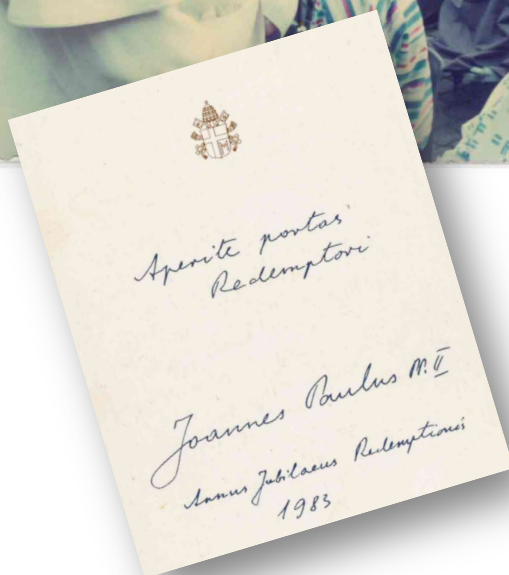 Aperite portas
Redemptori
Joannes Paulus PP. II
Annus Jubilaeus Redemptionis
1983